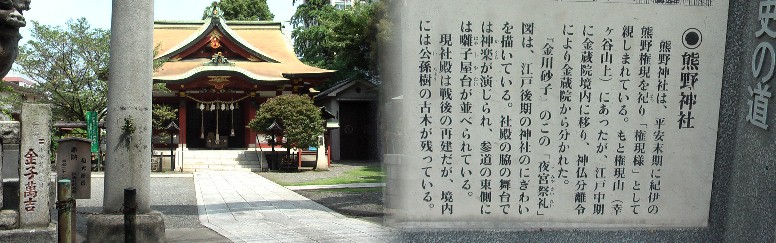 史の道
◉熊野神社
熊野神社は、平安末期に紀伊の
熊野権現を祀り「権現様」として
親しまれている。もと権現山（幸
ヶ谷山上）にあったが、江戸中期
に金蔵院境内に移り、神仏分離令
により金蔵院から分かれた。
『金川砂子』のこの「夜宮祭礼」
図は、江戸後期の神社のにぎわい
を描いている。社殿の脇の舞台で
は神楽が演じられ、参道の東側に
は囃子屋台が並べられている。
現社殿は戦後の再建だが、境内
には公孫樹の古木が残っている。
金子萬吉